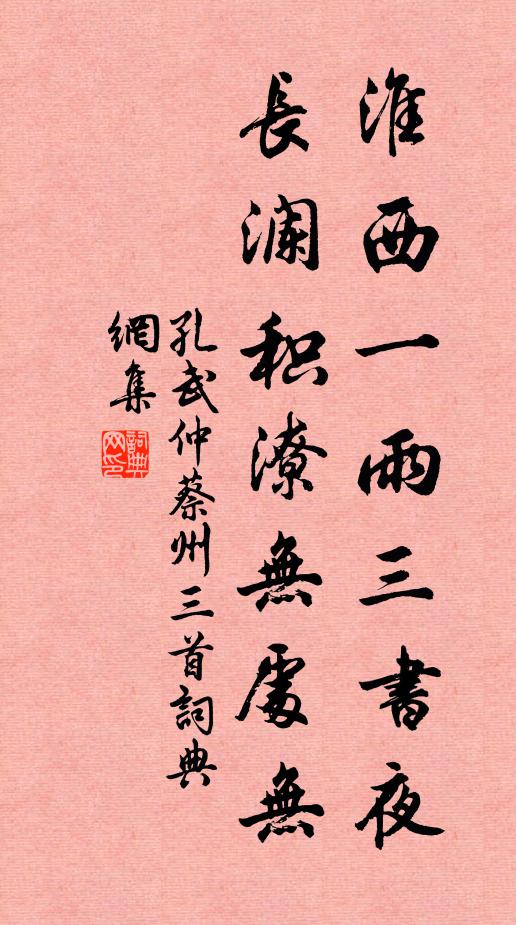 淮西一雨三書夜
長瀾积潦無處無
孔武仲蔡州三首詞典
網集
詞典網印